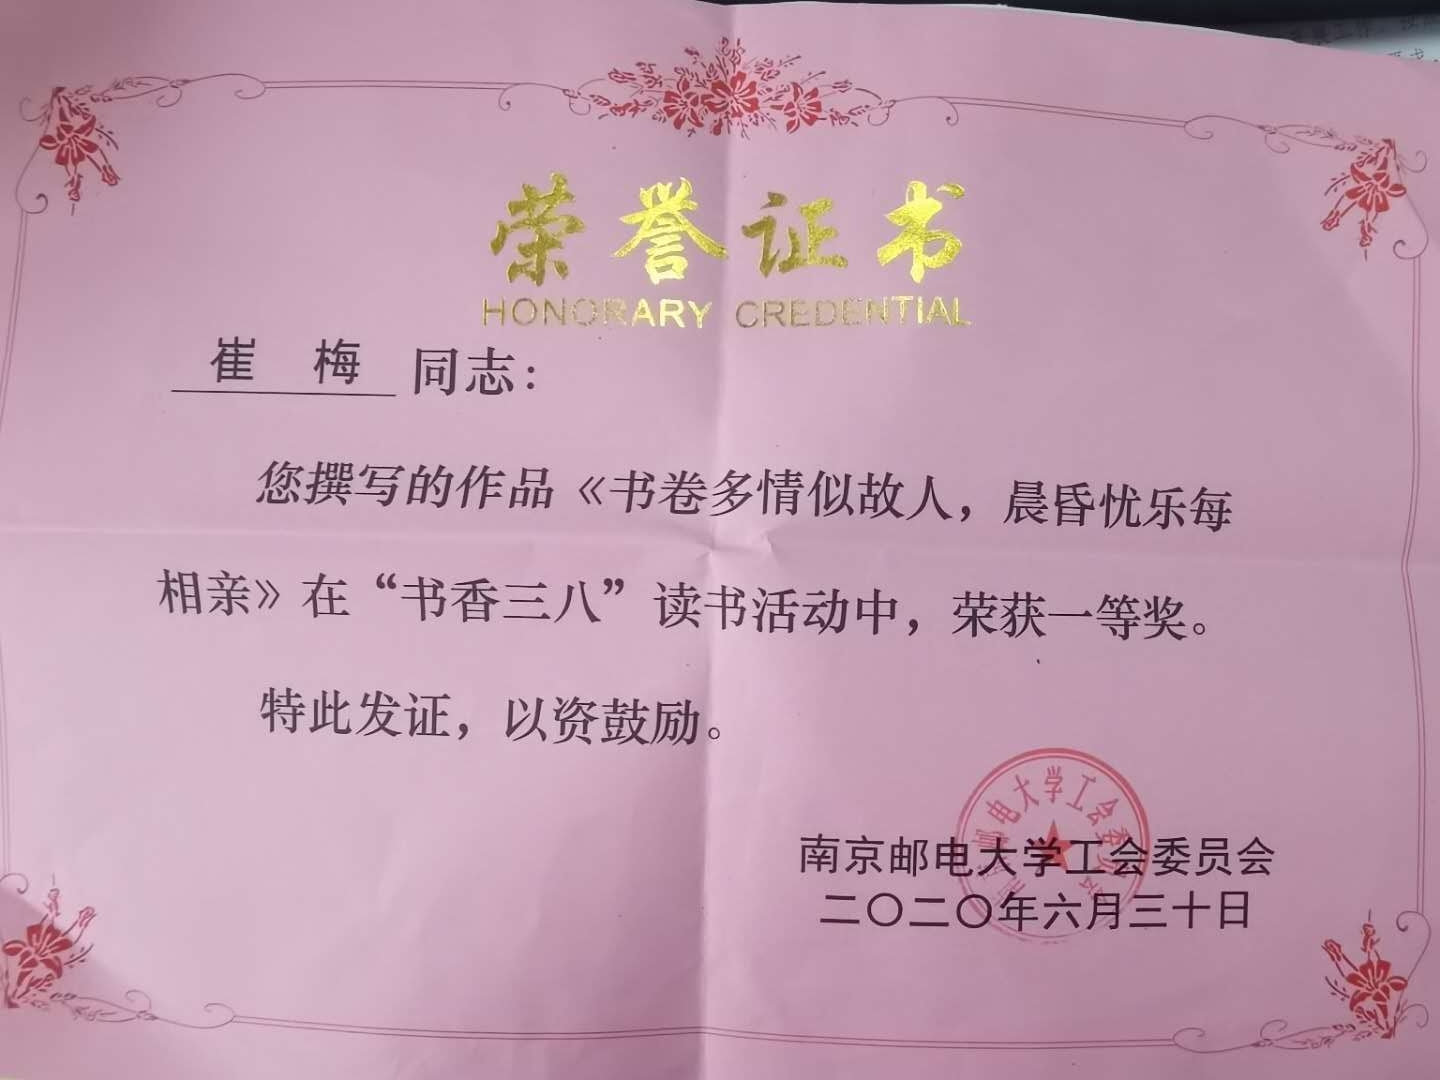 荣誉证书
HONORARY CREDENTIAL
崔 梅 同志：
您撰写的作品《书卷多情似故人，晨昏忧乐每
相亲》在“书香三八”读书活动中，荣获一等奖。
特此发证，以资鼓励。
南京邮电大学工会委员会
南京邮电大学工会委员会
二〇二〇年六月三十日